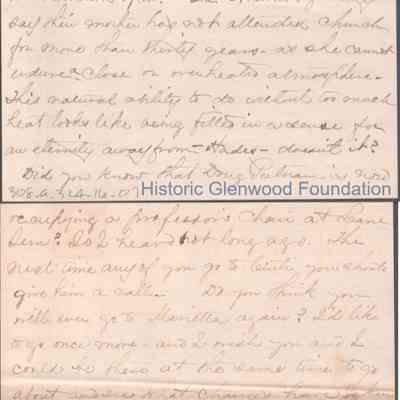 say their mother has not attended church
for more than thirty years - as she cannot
endure a close or overheated atmosphere -
This natural ability to do without too much
heat looks like being fitted in a sense for
an eternity away from - Hades - doesn't it?
Did you know that Doug Putnam is now
308.a.
Historic Glenwood Foundation
occupying a professor's chair at Lane
Sem? So I heard not long ago. The
next time any of you go to Cinti, you should
give him a call. Do you think you
will ever go to Marietta again? I'd like
to go once more - and I wish you and I
could be there at the same time to go
about and see what changes have